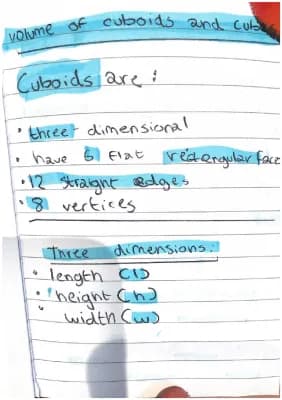 volume of cuboids and cubes
Cuboids are :
• three - dimensional
• have 6 flat rectangular face
• 12 straight edges
• 8 vertices
Three dimensions:
• length (l)
• height (h)
• width (w)